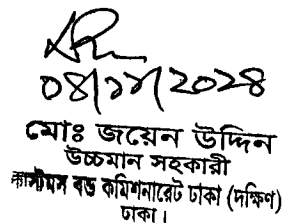 ০৪/১১/২০২৪
মোঃ জয়েন উদ্দিন
উচ্চমান সহকারী
কাস্টমস বন্ড কমিশনারেট ঢাকা (দক্ষিণ)
ঢাকা।